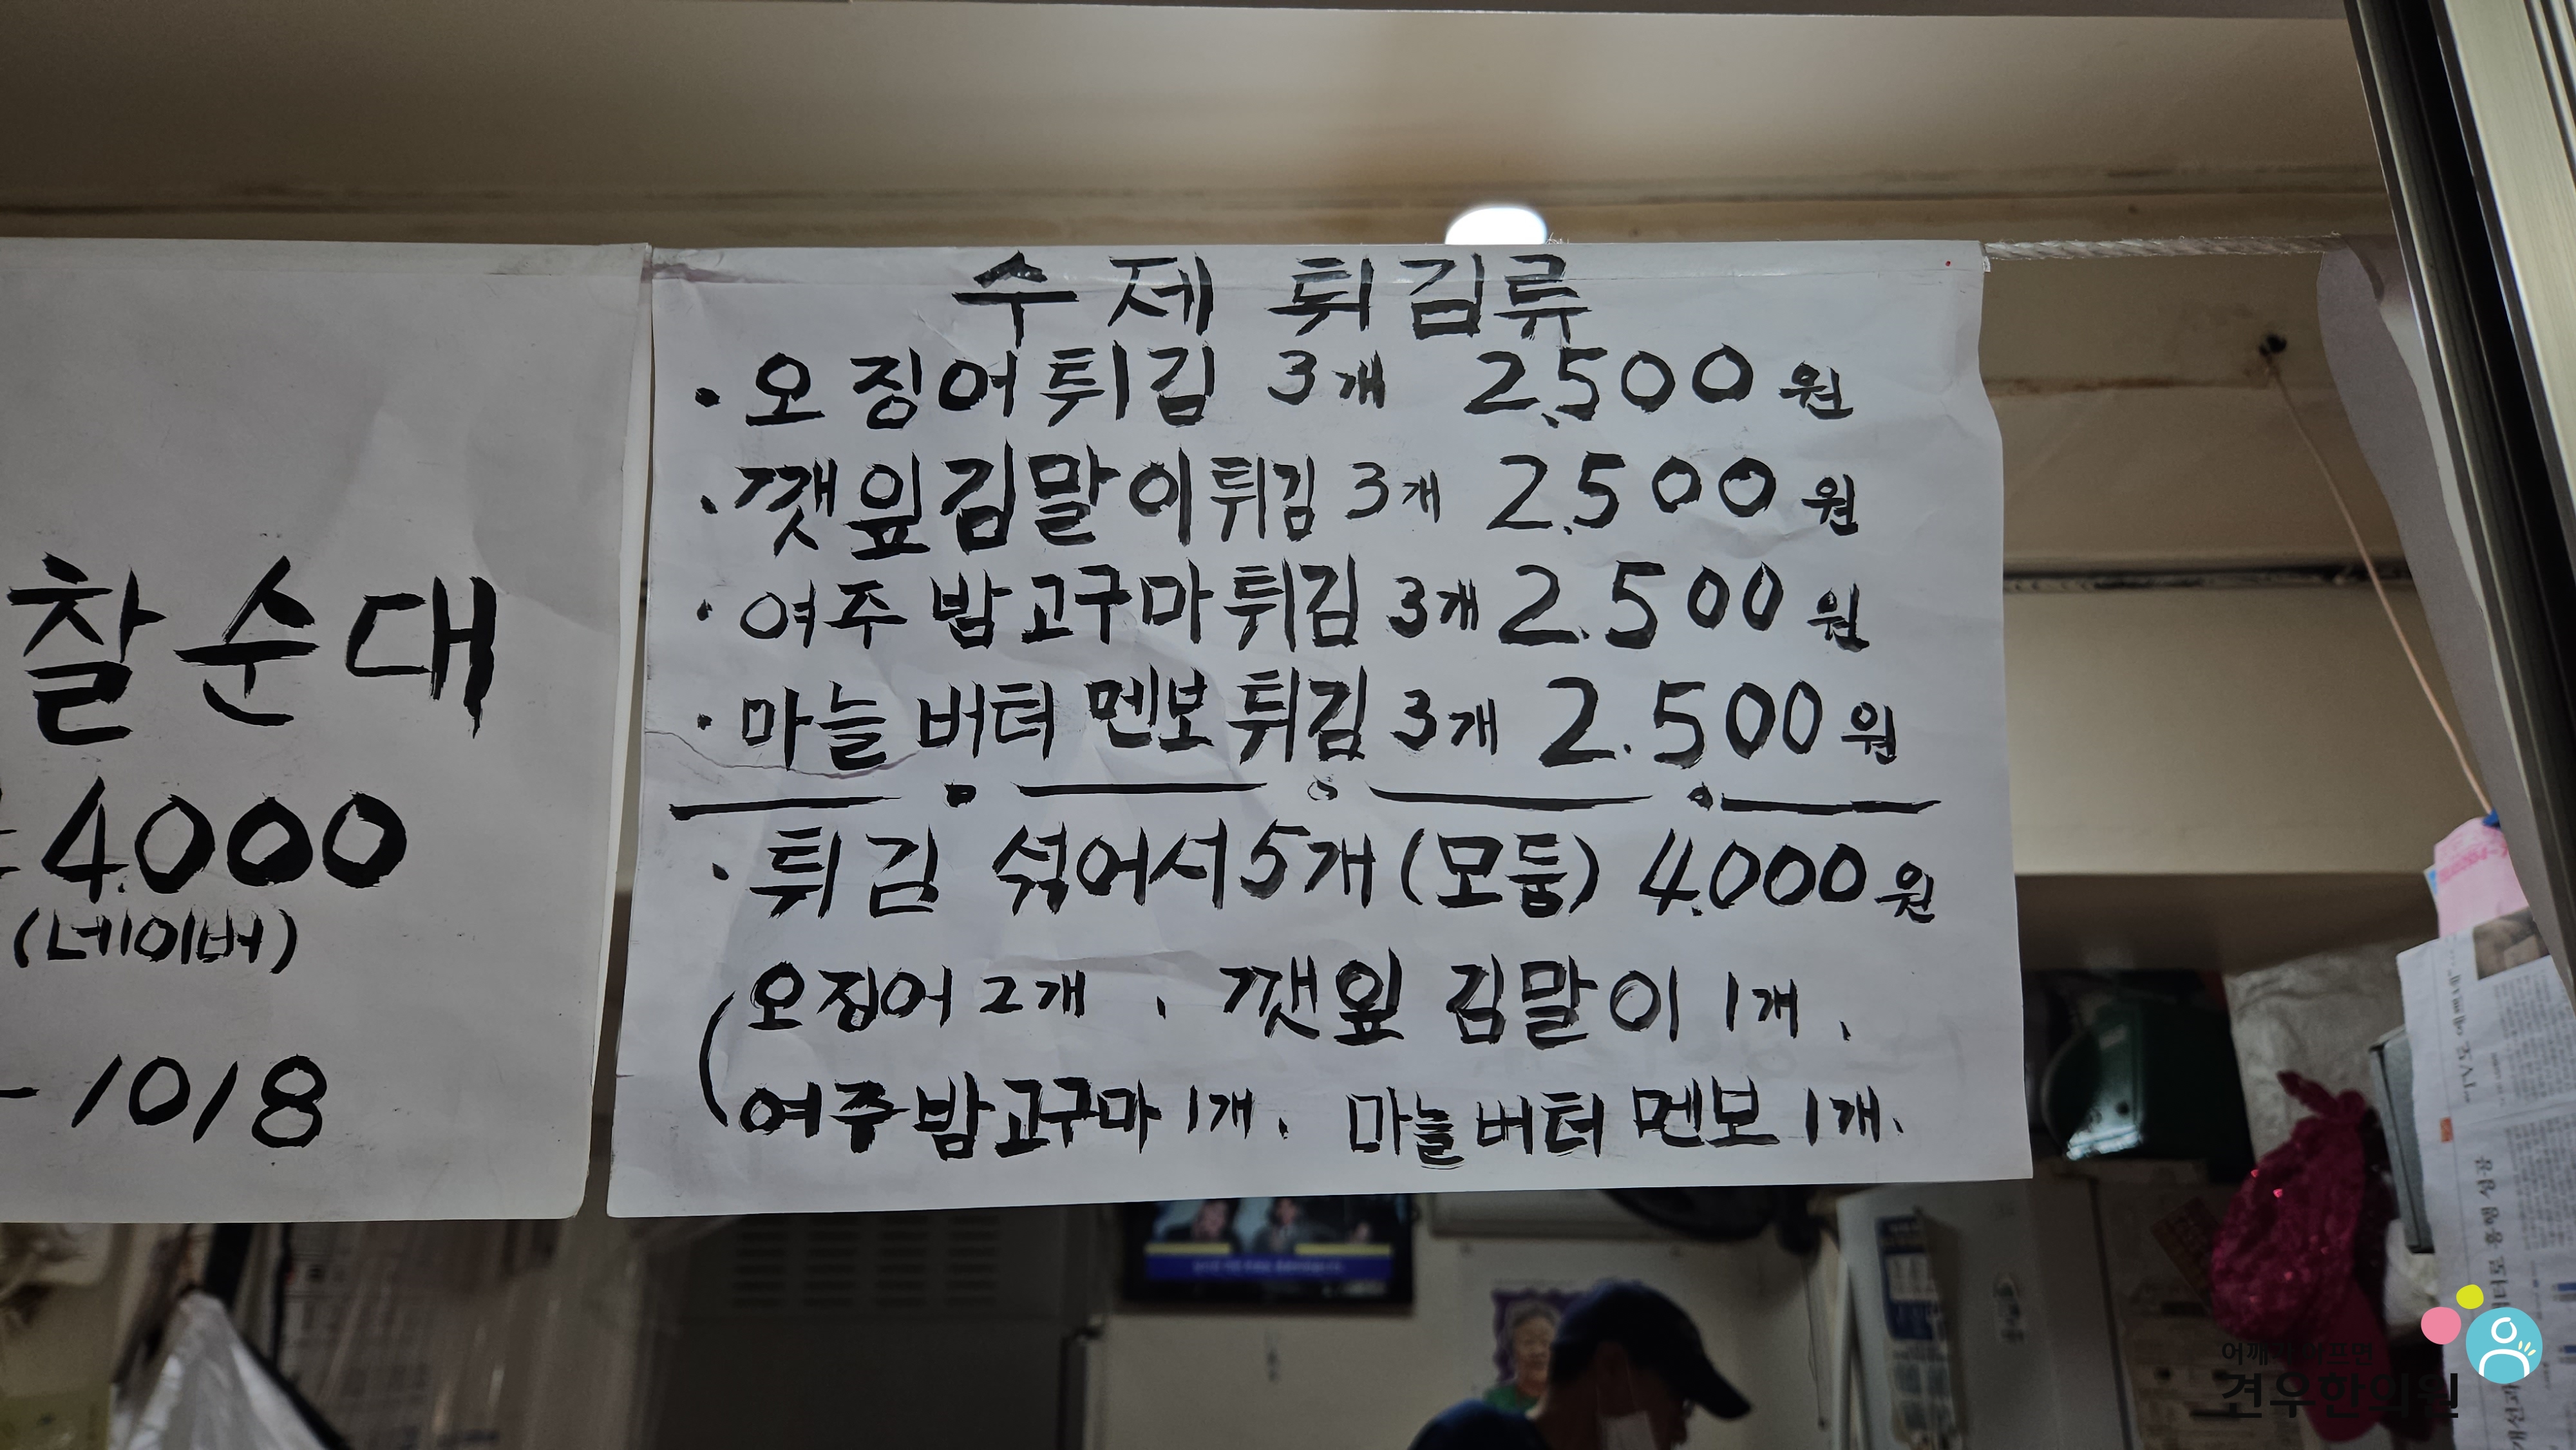 찰순대
4.000
(네이버)
1018
수제 튀김류
· 오징어튀김 3개 2.500원
· 깻잎김말이튀김 3개 2.500원
· 여주 밤고구마튀김 3개 2.500원
· 마늘 버터 멘보튀김 3개 2.500원
· 튀김 섞어서 5개 (모둠) 4.000원
(오징어 2개, 깻잎 김말이 1개,
여주밤고구마 1개, 마늘버터 멘보 1개.
어깨가 아프면
견우한의원